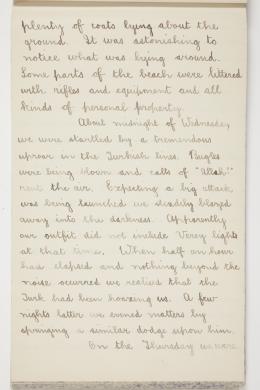 plenty of coats lying about the
ground. It was astonishing to
notice what was lying around.
Some parts of the beach were littered
with rifles and equipment and all
kinds of personal property.
About midnight of Wednesday,
we were startled by a tremendous
uproar in the Turkish lines. Bugles
were being blown and calls of "Allah"
rent the air. Expecting a big attack
was being launched we steadily blazed
away into the darkness. Apparently
our outfit did not include Verey lights
at that time. When half an hour
had elapsed and nothing beyond the
noise occurred we realised that the
Turk had been hoaxing us. A few
nights later we evened matters by
springing a similar dodge upon him.
On the Thursday we were